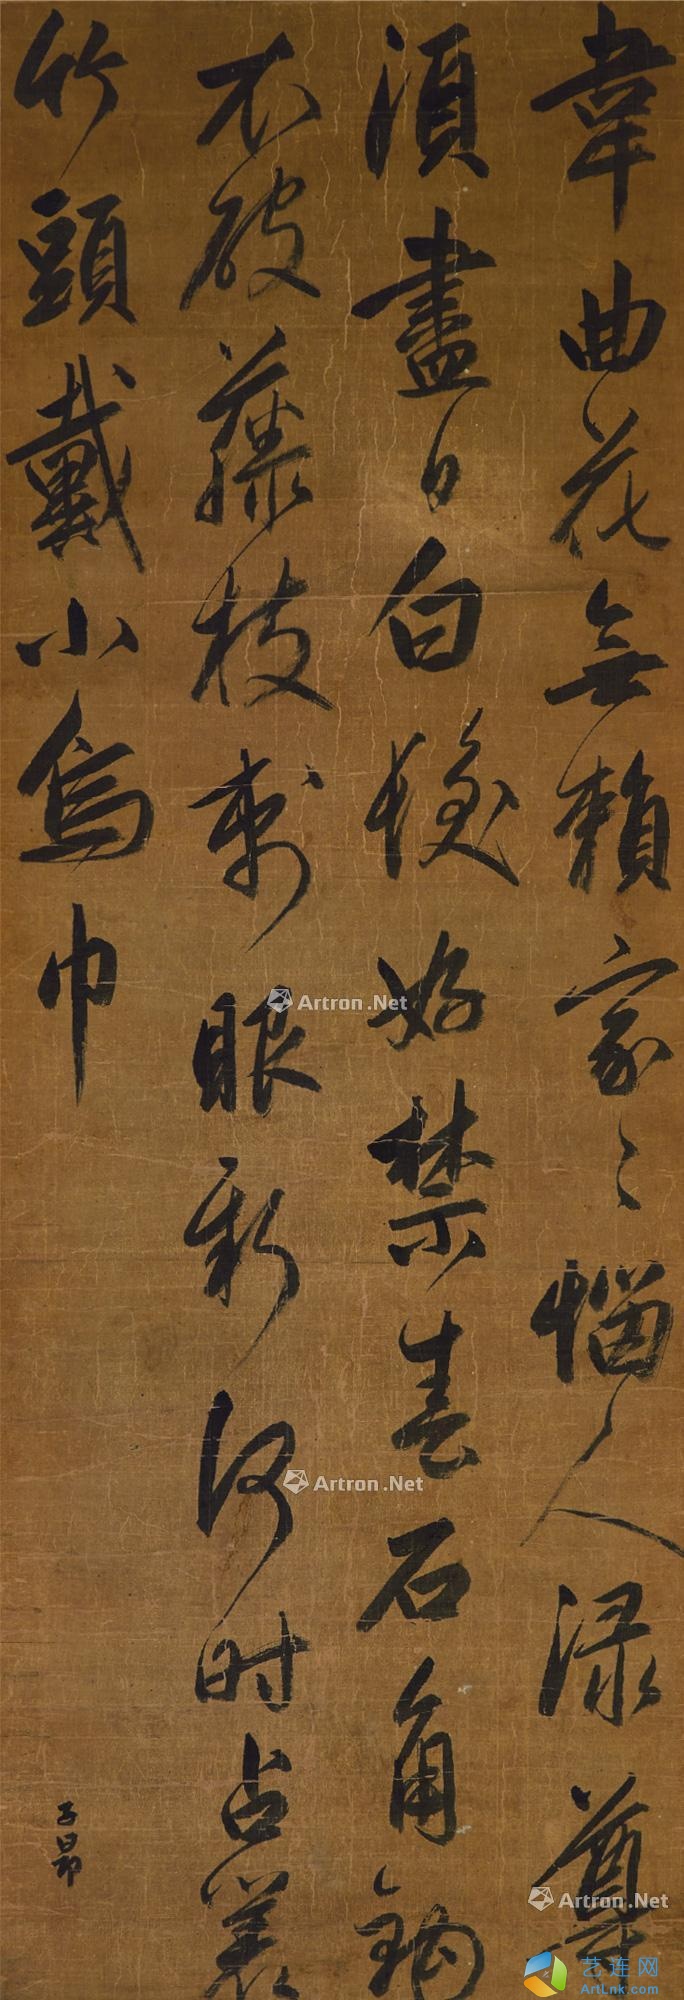 韋曲花無賴家〻惱人渌尊
須盡日白髮好禁春石角鈎
衣破藤枝刺眼新何时占叢
竹頭戴小烏巾
子昂
Artron.Net
Artron.Net
Artron.Net
艺连网
ArtLnk.com